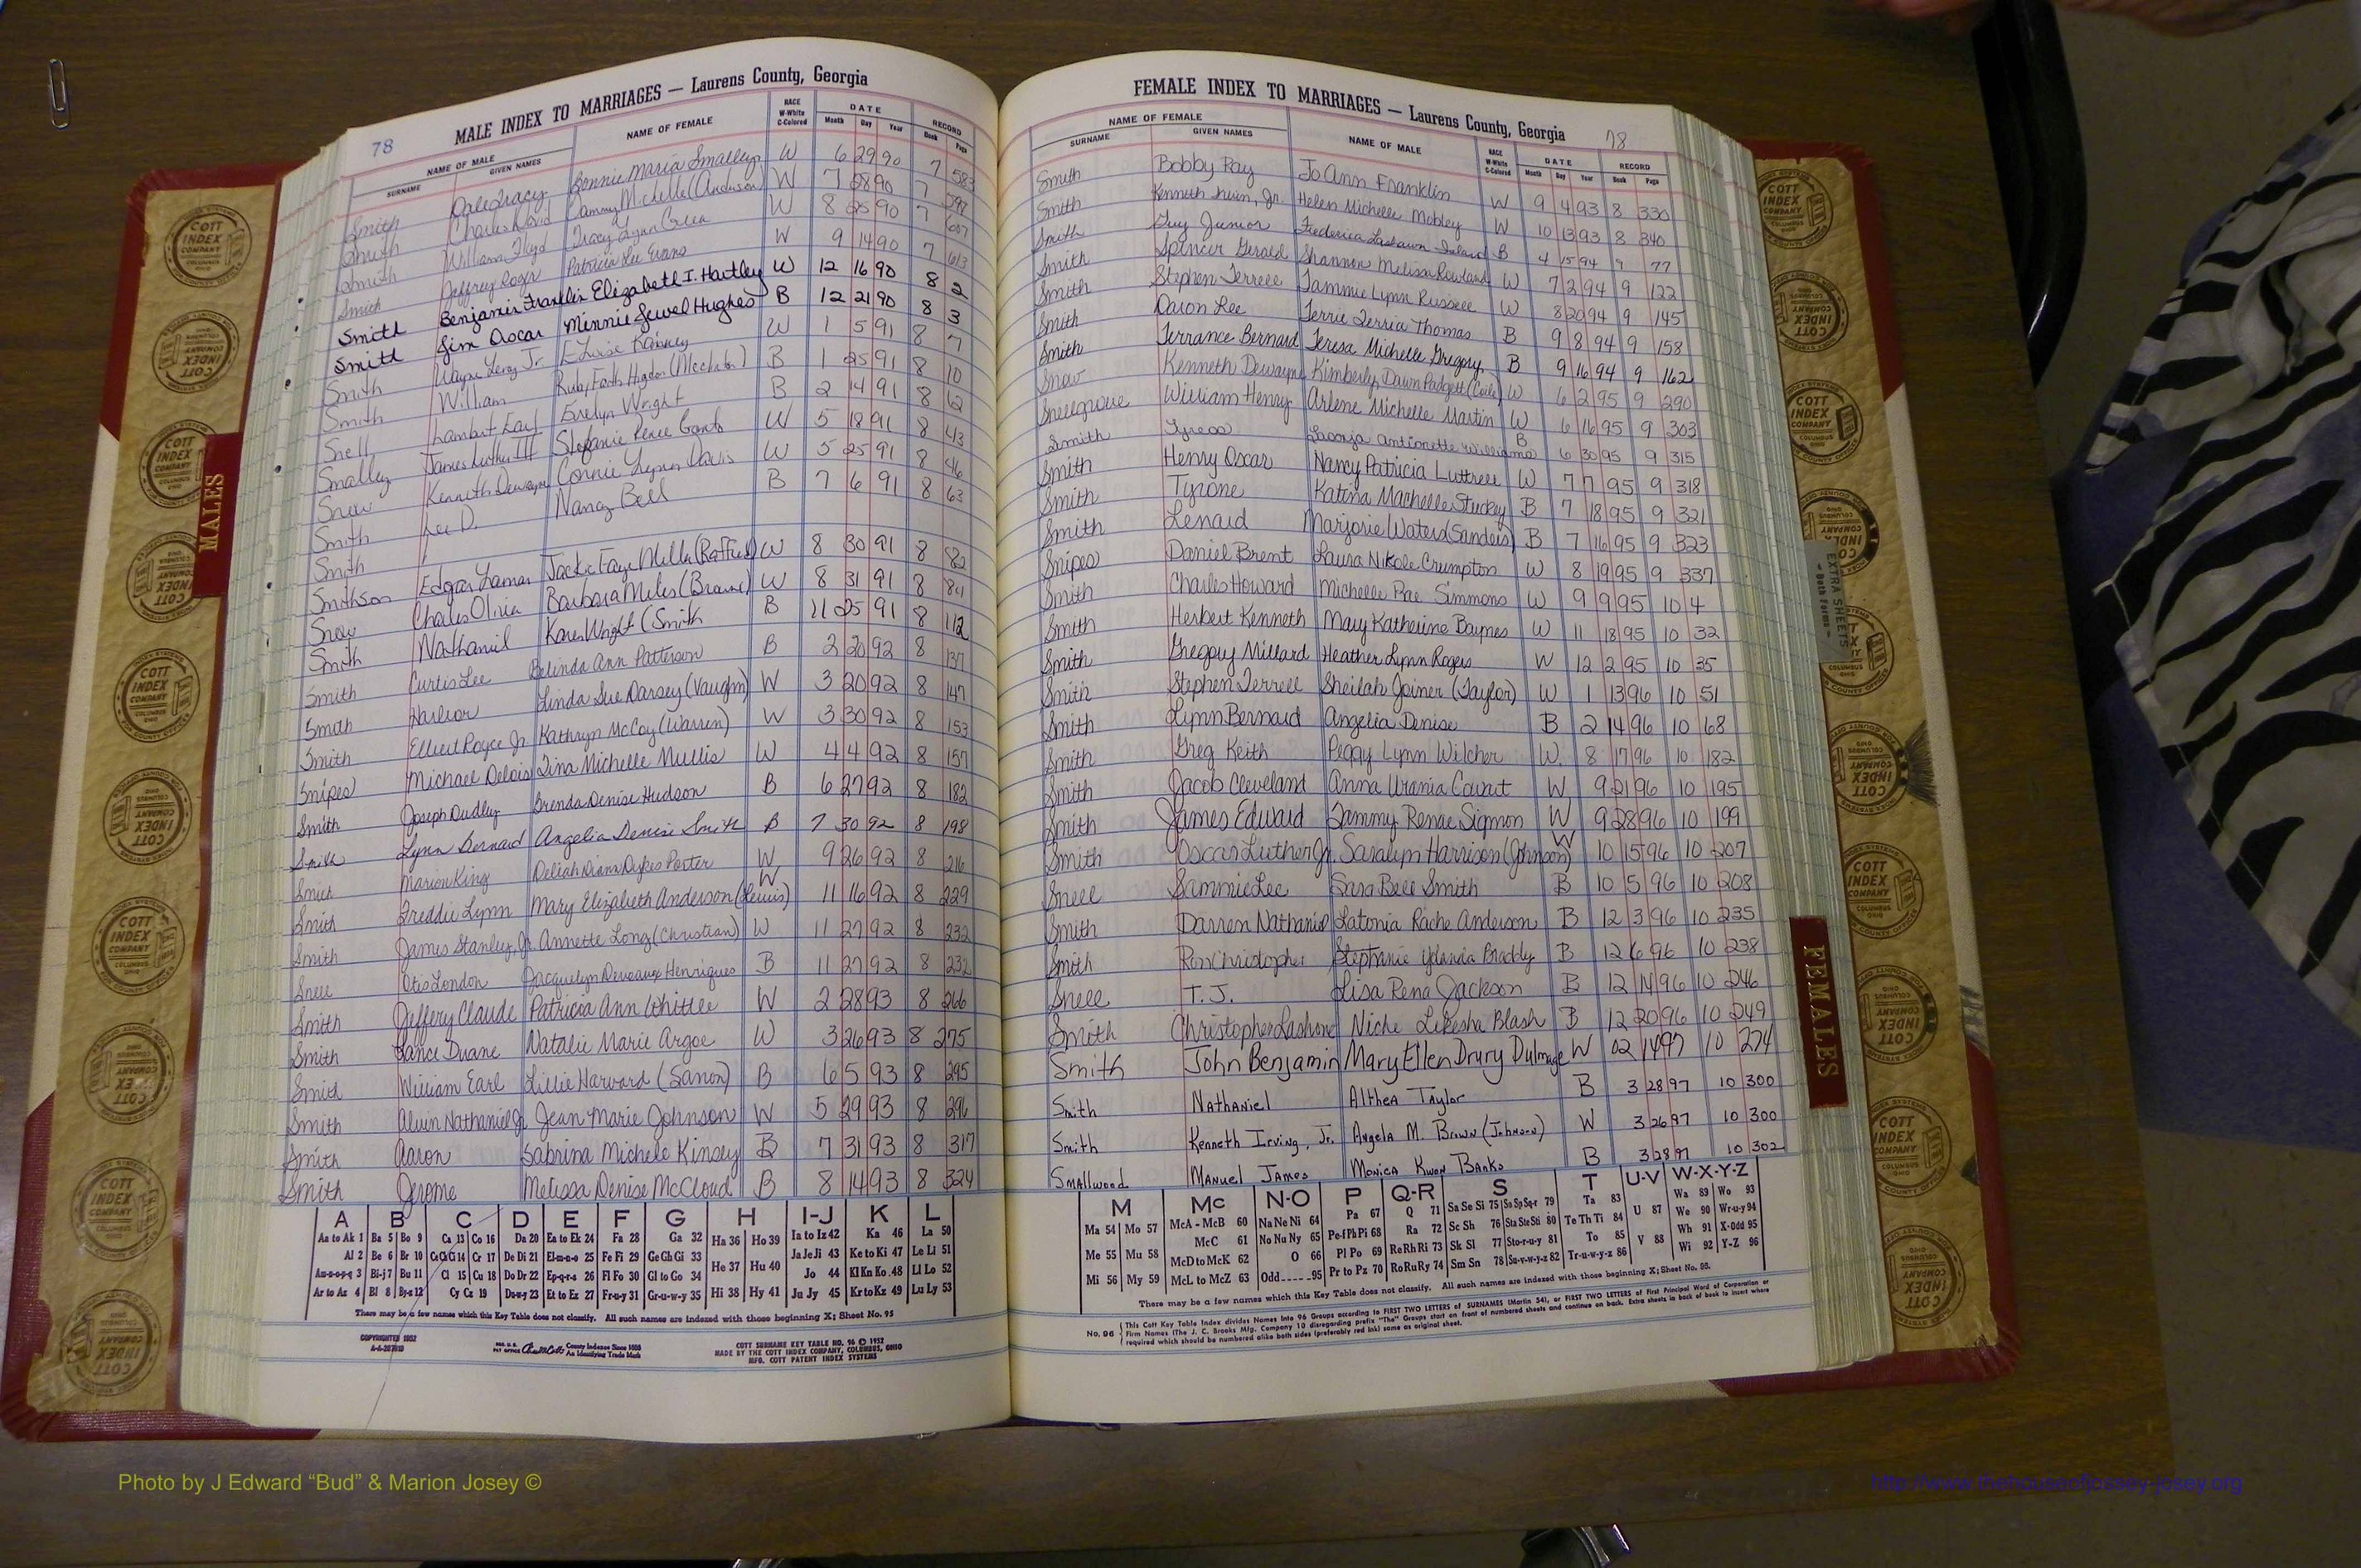 78
MALE INDEX TO MARRIAGES — Laurens County, Georgia
NAME OF MALE NAME OF FEMALE RACE W-White C-Colored DATE RECORD
SURNAME GIVEN NAMES Month Day Year Book Page
Smith Dale Tracy Bonnie Maria Smalley W 6 29 90 7 583
Smith Charles David Tammy Michelle (Anderson) W 7 28 90 7
Smith William Floyd Tracy Lynn Green W 8 25 90 7 607
Smith Jeffrey Roger Patricia Lee Evans W 9 14 90 7 613
Smith Benjamin Franklin Elizabeth I. Hartley W 12 16 90 8 2
Smith Jim Oscar Minnie Jewel Hughes B 12 21 90 8 3
Smith Wayne Leroy Jr W 1 5 91 8 7
Smith William Ruby Faith B 1 25 91 8 10
Snell Lambert Earl Evelyn Wright B 2 14 91 8 12
Smalley James Luther III Stefanie Renee W 5 18 91 8 43
Snow Kenneth Dewayne Connie Lynn Davis W 5 25 91 8 46
Smith Lee D. Nancy Bell B 7 6 91 8 63
Smith
Smithson Edgar Lamar Jackie Faye Mills W 8 30 91 8 82
Snow Charles Barbara Miles W 8 31 91 8 84
Smith Nathaniel Karen Wright (Smith B 11 25 91 8 112
Smith Curtis Lee Belinda Ann Patterson B 2 22 92 8 137
Smith Linda Sue Darsey (Vaughn) W 3 20 92 8 147
Smith Elbert Royce Jr Kathryn McCoy (Warren) W 3 30 92 8 153
Snipes Michael Delois Tina Michelle Mullis W 4 4 92 8 157
Smith Joseph Dudley Brenda Denise Hudson B 6 27 92 8 182
Smith Lynn Bernard Angelia Denise Smith B 7 30 92 8 198
Smith Marion King Deliah Diann Dykes Porter W 9 26 92 8 216
Smith Freddie Lynn Mary Elizabeth Anderson (Lewis) W 11 16 92 8 229
Smith James Stanley, Jr. Annette Long (Christian) W 11 27 92 8 232
Snell Otis London Jacquelyn Deveauge Henriques B 11 27 92 8 232
Smith Jeffery Claude Patricia Ann Whittle W 2 28 93 8 266
Smith Lance Duane Natalie Marie Argoe W 3 26 93 8 275
Smith William Earl Lillie Harvard (Sanon) B 6 5 93 8 295
Smith Alvin Nathaniel Jr Jean Marie Johnson W 5 29 93 8 296
Smith Aaron Sabrina Michele Kinsey B 7 31 93 8 317
Smith Jerome Melissa Denise McCloud B 8 14 93 8 324
A B C D E F G H I-J K L
Aa to Ak 1 Ba 5 Bo 9 Ca 13 Co 16 Da 20 Ea to Ek 24 Fa 28 Ga 32 Ha 36 Ho 39 Ia to Iz 42 Ka 46 La 50
Al 2 Be 6 Br 10 Ce Ch Ci 14 Cr 17 De Di 21 El-m-n-o 25 Fe Fi 29 Ge Gh Gi 33 He 37 Hu 40 Ja Je Ji 43 Ke to Ki 47 Le Li 51
Am-n-o-p-q 3 Bi-j 7 Bu 11 Cl 15 Cu 18 Do Dr 22 Ep-q-r-s 26 Fl Fo 30 Gl to Go 34 Jo 44 Kl Kn Ko 48 Ll Lo 52
Ar to Az 4 Bl 8 By-z 12 Cy Cz 19 Du-w-y 23 Et to Ez 27 Fr-u-y 31 Gr-u-w-y 35 Hi 38 Hy 41 Ju Jy 45 Kr to Kz 49 Lu Ly 53
There may be a few names which this Key Table does not classify. All such names are indexed with those beginning X; Sheet No. 95
COPYRIGHTED 1952
County Indexes Since 1888
An Identifying Trade Mark
COTT SURNAME KEY TABLE NO. 96 © 1952
MADE BY THE COTT INDEX COMPANY, COLUMBUS, OHIO
MFG. COTT PATENT INDEX SYSTEMS
FEMALE INDEX TO MARRIAGES — Laurens County, Georgia
78
NAME OF FEMALE NAME OF MALE RACE W-White C-Colored DATE RECORD
SURNAME GIVEN NAMES Month Day Year Book Page
Smith Bobby Ray Jo Ann Franklin W 9 4 93 8 330
Smith Kenneth Irvin, Jr. Helen Michelle Mobley W 10 13 93 8 340
Smith Guy Junior Frederica Lashawn Island B 4 15 94 9 77
Smith Spencer Gerald Shannon Melissa Rowland W 7 2 94 9 122
Smith Stephen Terrell Tammie Lynn Russell W 8 20 94 9 145
Smith Daron Lee Terrie Terria Thomas B 9 8 94 9 158
Smith Terrance Bernard Teresa Michelle Gregory B 9 16 94 9 162
Snow Kenneth Dewayne Kimberly Dawn Padgett W 6 2 95 9 290
Snellgrove William Henry Arlene Michelle Martin W 6 16 95 9 303
Smith Antionette Williams B 6 30 95 9 315
Smith Henry Oscar Nancy Patricia Luttrell W 7 7 95 9 318
Smith Tyrone Katina Machelle Stuckey B 7 18 95 9 321
Smith Lenard Marjorie Waters (Sanders) B 7 16 95 9 323
Snipes Daniel Brent Laura Nikole Crumpton W 8 19 95 9 337
Smith Charles Howard Michelle Rae Simmons W 9 9 95 10 4
Smith Herbert Kenneth Mary Katherine Baynes W 11 18 95 10 32
Smith Gregory Millard Heather Lynn Rogers W 12 2 95 10 35
Smith Stephen Terrell Sheilah Joiner (Taylor) W 1 13 96 10 51
Smith Lynn Bernard Angelia Denise B 2 14 96 10 68
Smith Greg Keith Peggy Lynn Wilcher W. 8 17 96 10 182
Smith Jacob Cleveland Anna Urania Count W 9 21 96 10 195
Smith James Edward Tammy Renae Sigmon W 9 28 96 10 199
Smith Oscar Luther Jr. Saralyn Harrison (Johnson) W 10 15 96 10 207
Snell Sammie Lee Sara Bell Smith B 10 5 96 10 208
Smith Darren Nathaniel Latonia Rache Anderson B 12 3 96 10 235
Smith Ron Christopher Stephanie Yolanda Braddy B 12 6 96 10 238
Snell T. J. Lisa Rena Jackson B 12 14 96 10 246
Smith Christopher Lashone Niche Likesha Blash B 12 20 96 10 249
Smith John Benjamin Mary Ellen Drury Dulmage W 02 14 97 10 274
Smith Nathaniel Althea Taylor B 3 28 97 10 300
Smith Kenneth Irving, Jr. Angela M. Brown (Johnson) W 3 26 97 10 300
Smallwood Manuel James Monica Kwon Banks B 3 28 97 10 302
M Mc N-O P Q-R S T U-V W-X-Y-Z
Ma 54 Mo 57 McA - McB 60 Na Ne Ni 64 Pa 67 Q 71 Sa Se Si 75 So Sp Sq-r 79 Ta 83 U 87 Wa 89 Wo 93
Me 55 Mu 58 McC 61 No Nu Ny 65 Pe-f Ph Pi 68 Ra 72 Sc Sh 76 Sta Ste Sti 80 Te Th Ti 84 We 90 Wr-u-y 94
McD to McK 62 O 66 Pl Po 69 Re Rh Ri 73 Sk Sl 77 Sto-r-u-y 81 To 85 V 88 Wh 91 X-Odd 95
Mi 56 My 59 McL to McZ 63 Odd-----95 Pr to Pz 70 Ro Ru Ry 74 Sm Sn 78 Su-v-w-y-z 82 Tr-u-w-y-z 86 Wi 92 Y-Z 96
There may be a few names which this Key Table does not classify. All such names are indexed with those beginning X; Sheet No. 95.
No. 96 This Cott Key Table Index divides Names into 96 Groups according to FIRST TWO LETTERS of SURNAMES (Martin 54), or FIRST TWO LETTERS of First Principal Word of Corporation or
Firm Names (The J. C. Brooks Mfg. Company 10 disregarding prefix "The" Groups start on front of numbered sheets and continue on back. Extra sheets in back of book to insert where
required which should be numbered alike both sides (preferably red ink) same as original sheet.
MALES
FEMALES
EXTRA SHEETS
— Both Forms —
COTT INDEX COMPANY COLUMBUS OHIO
Photo by J Edward “Bud” & Marion Josey ©
http://www.thehouseofjossey-josey.org